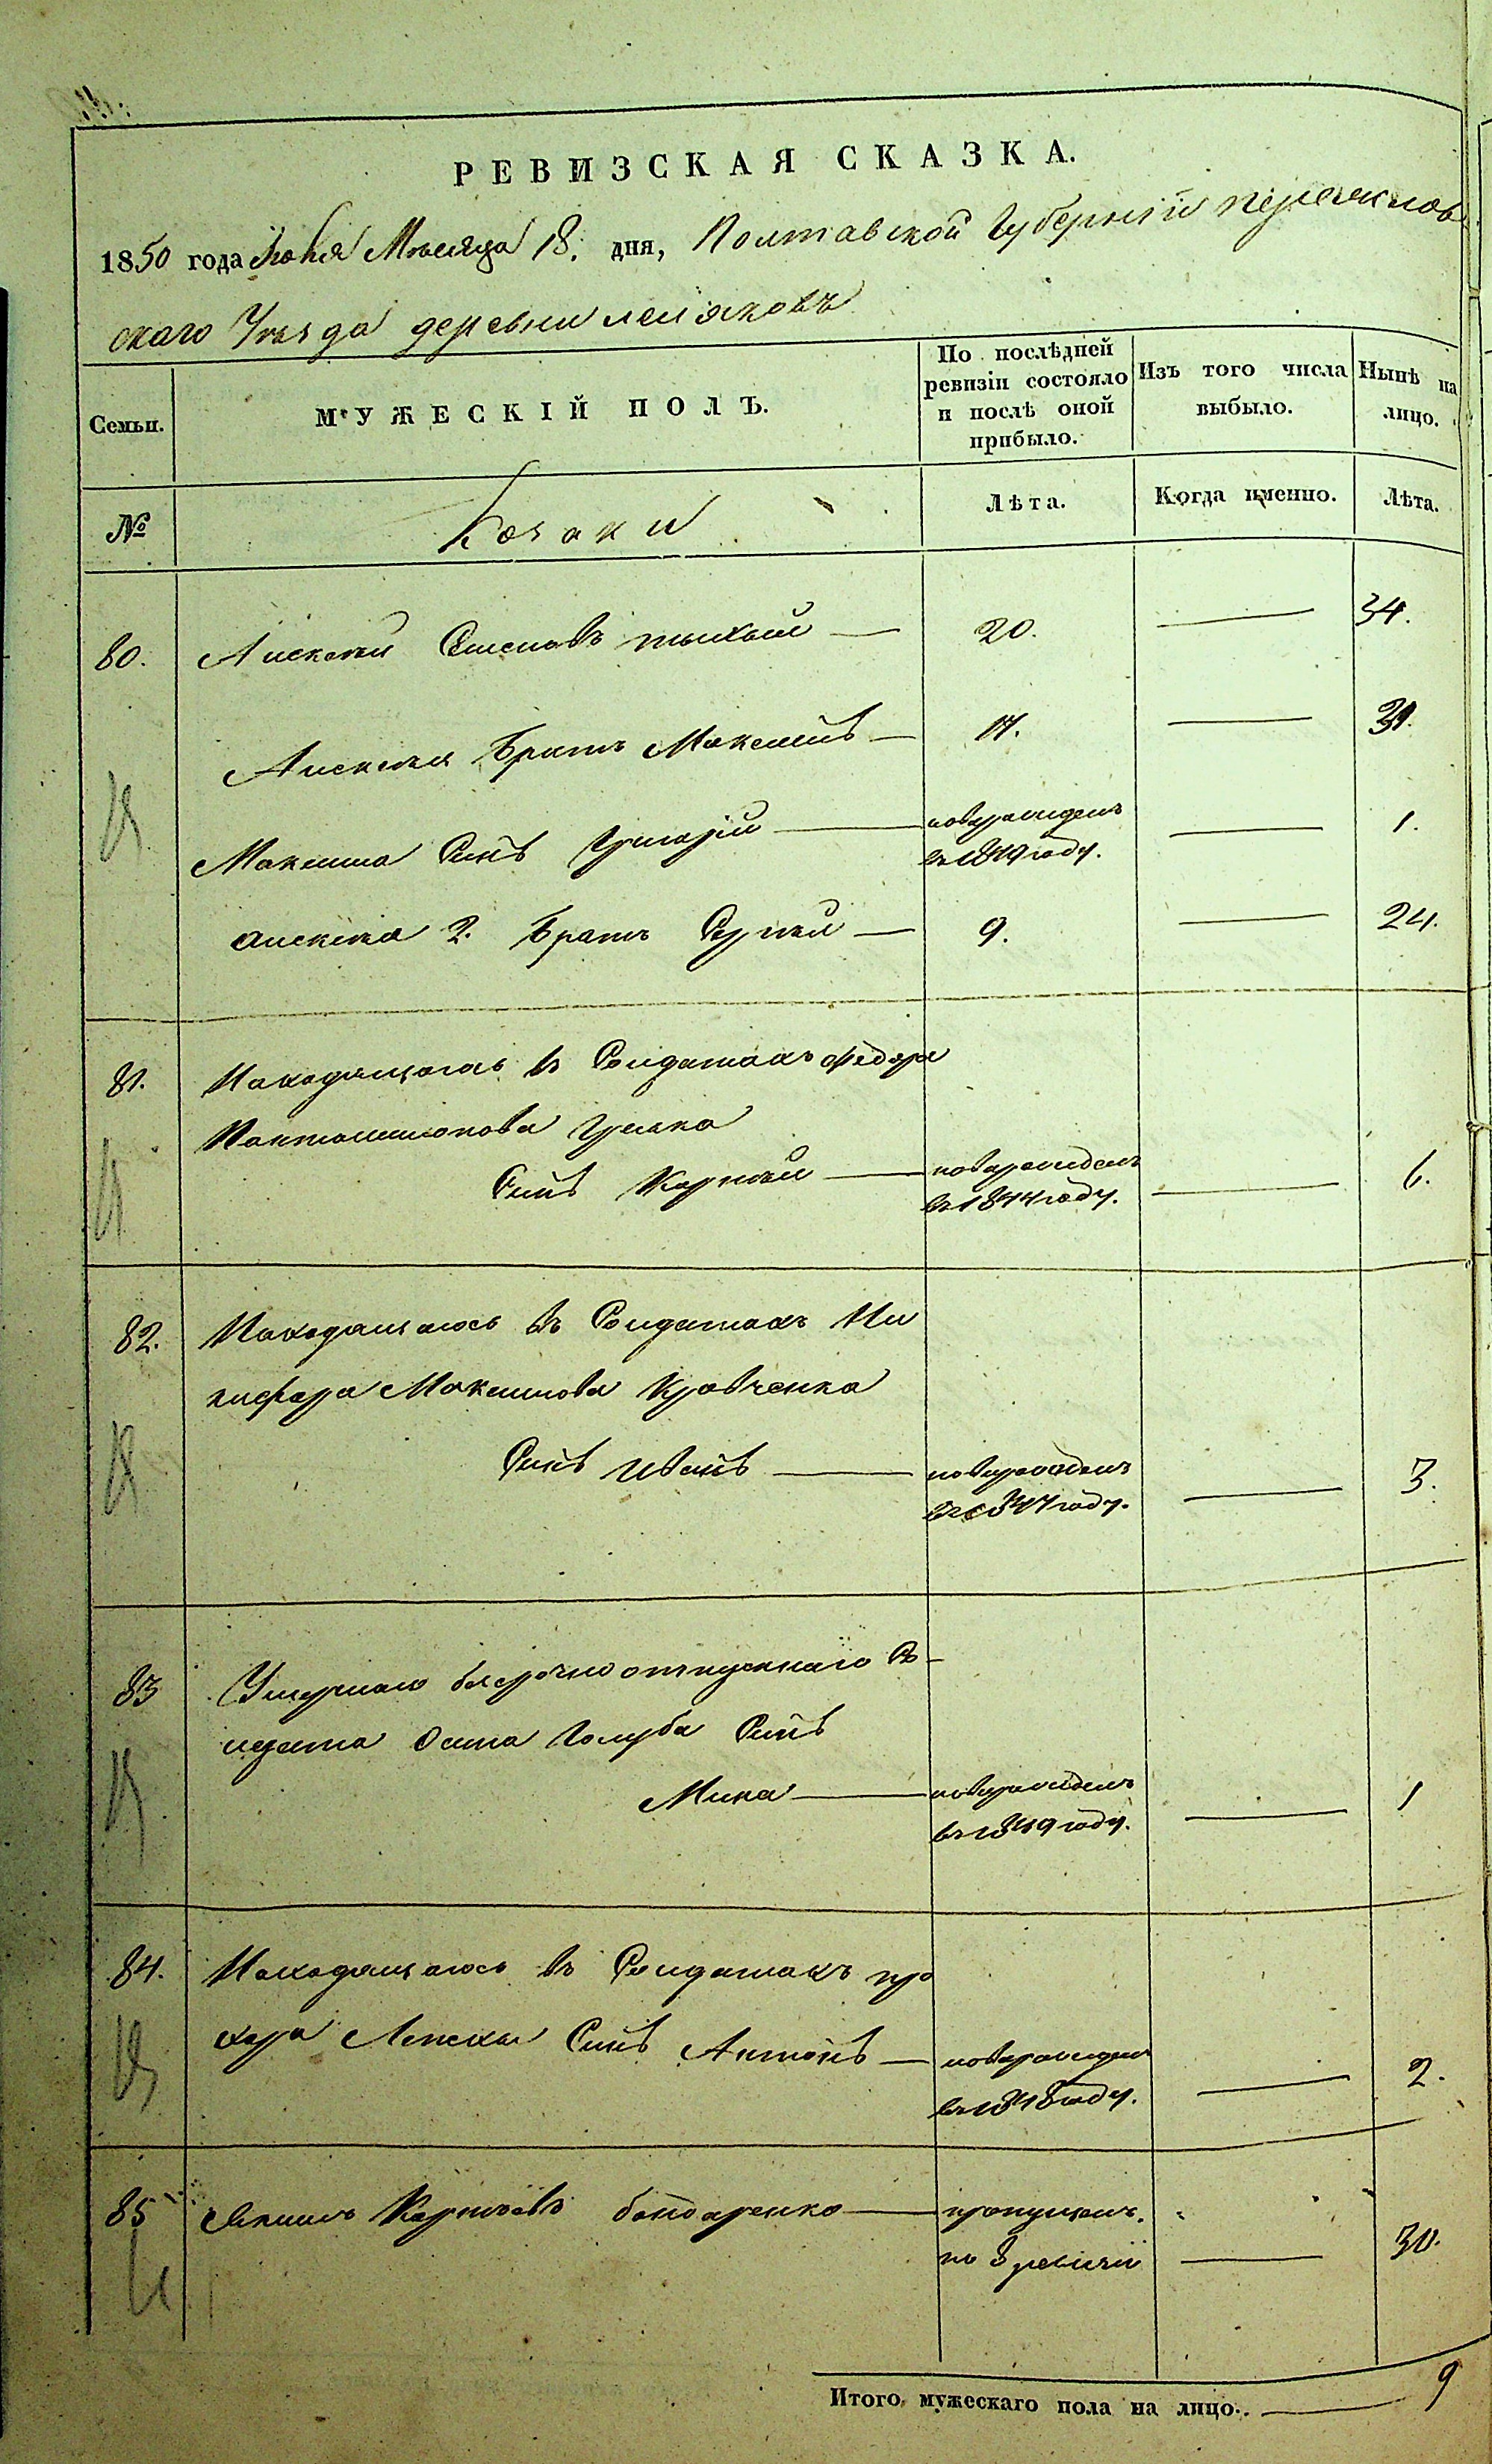 РЕВИЗСКАЯ СКАЗКА.
1850 года Іюня Мѣсяца 18. дня, Полтавской Губерніи
скаго Уѣзда деревни
Семьи.
МУЖЕСКІЙ ПОЛЪ.
По послѣдней ревизіи состояло и послѣ оной прибыло.
Изъ того числа выбыло.
Нынѣ на лицо.
№
Козаки
Лѣта.
Когда именно.
Лѣта.
80. Алексѣй Семеновъ — 20. — 34.
Алексѣя Братъ Максимъ — 17. — 31.
Максима Синъ Григорій — новорожденъ — 1.
въ 1849 году.
Алексѣя 2. Братъ Сергѣй — 9. — 24.
81. Находящагось въ Солдатахъ Федора
Пантелимонова
Синъ Корнѣй — новорожденъ — 6.
въ 1844 году.
82. Находящагось въ Солдатахъ Ни
кифора Максимова Кравченка
Синъ Иванъ — новорожденъ — 3.
въ 1847 году.
83 Умершаго безсрочно отпускнаго Со-
лдата Осипа Голуба Синъ
Мина — новорожденъ — 1
въ 1849 году.
84. Находящагось въ Солдатахъ Про
хора Синъ Антонъ — новорожденъ — 2.
въ 1848 году.
85 Якимъ Корнѣевъ бондаренко — пропущенъ.
по 8 ревизіи — 30.
Итого мужескаго пола на лицо. — 9